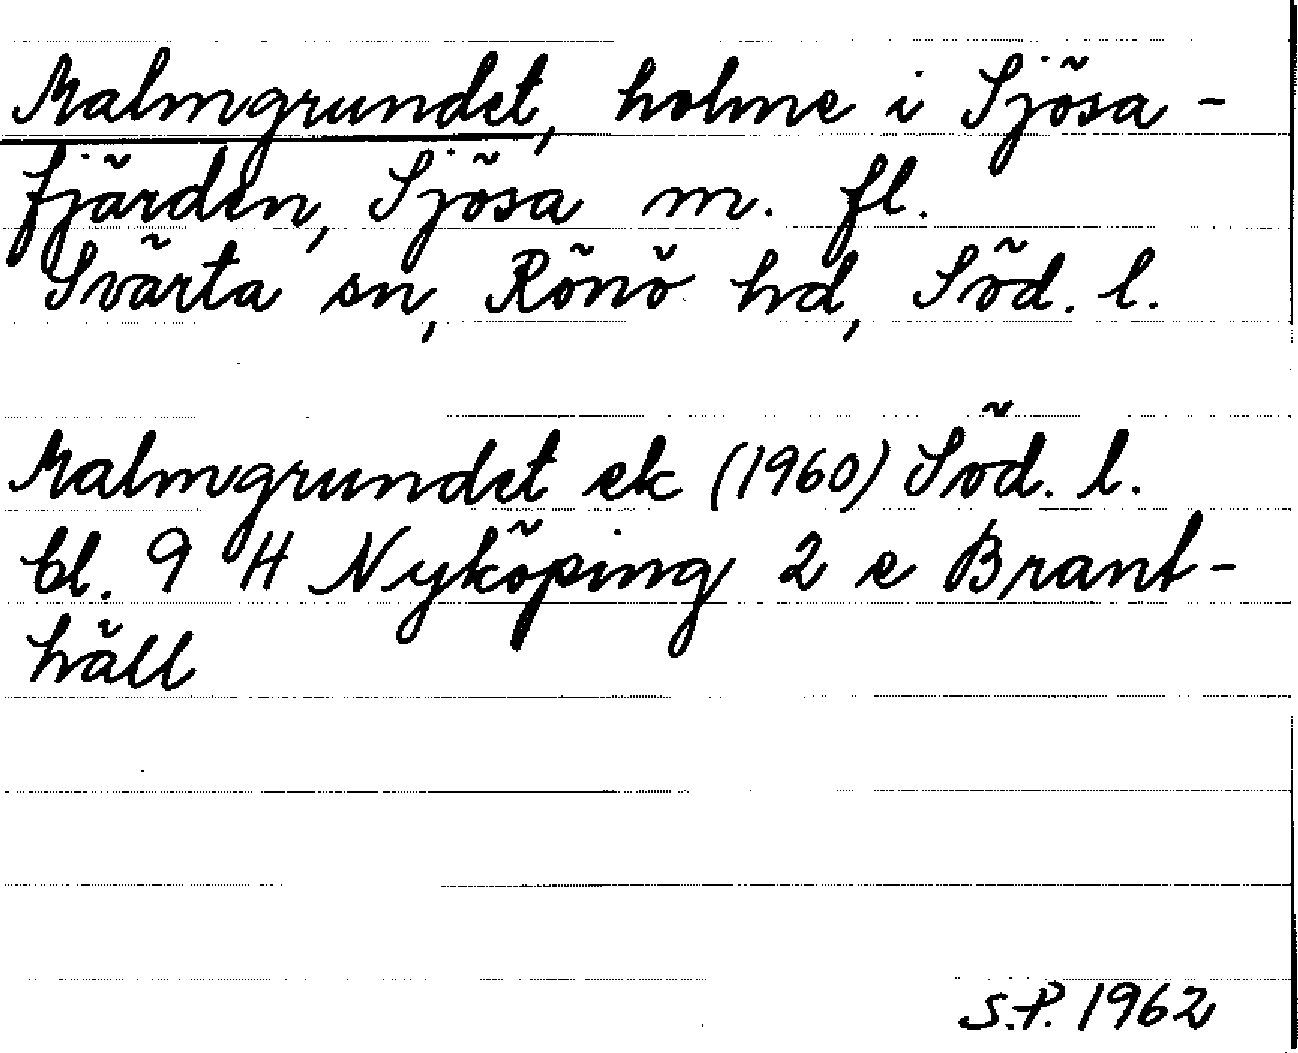 Malmgrundet, holme i Sjösa-
fjärden, Sjösa m. fl.
Svärta sn, Rönö hd, Söd. l.
Malmgrundet ek (1960) Söd. l.
bl. 9 H Nyköping 2 e Brant-
häll
S.P. 1962